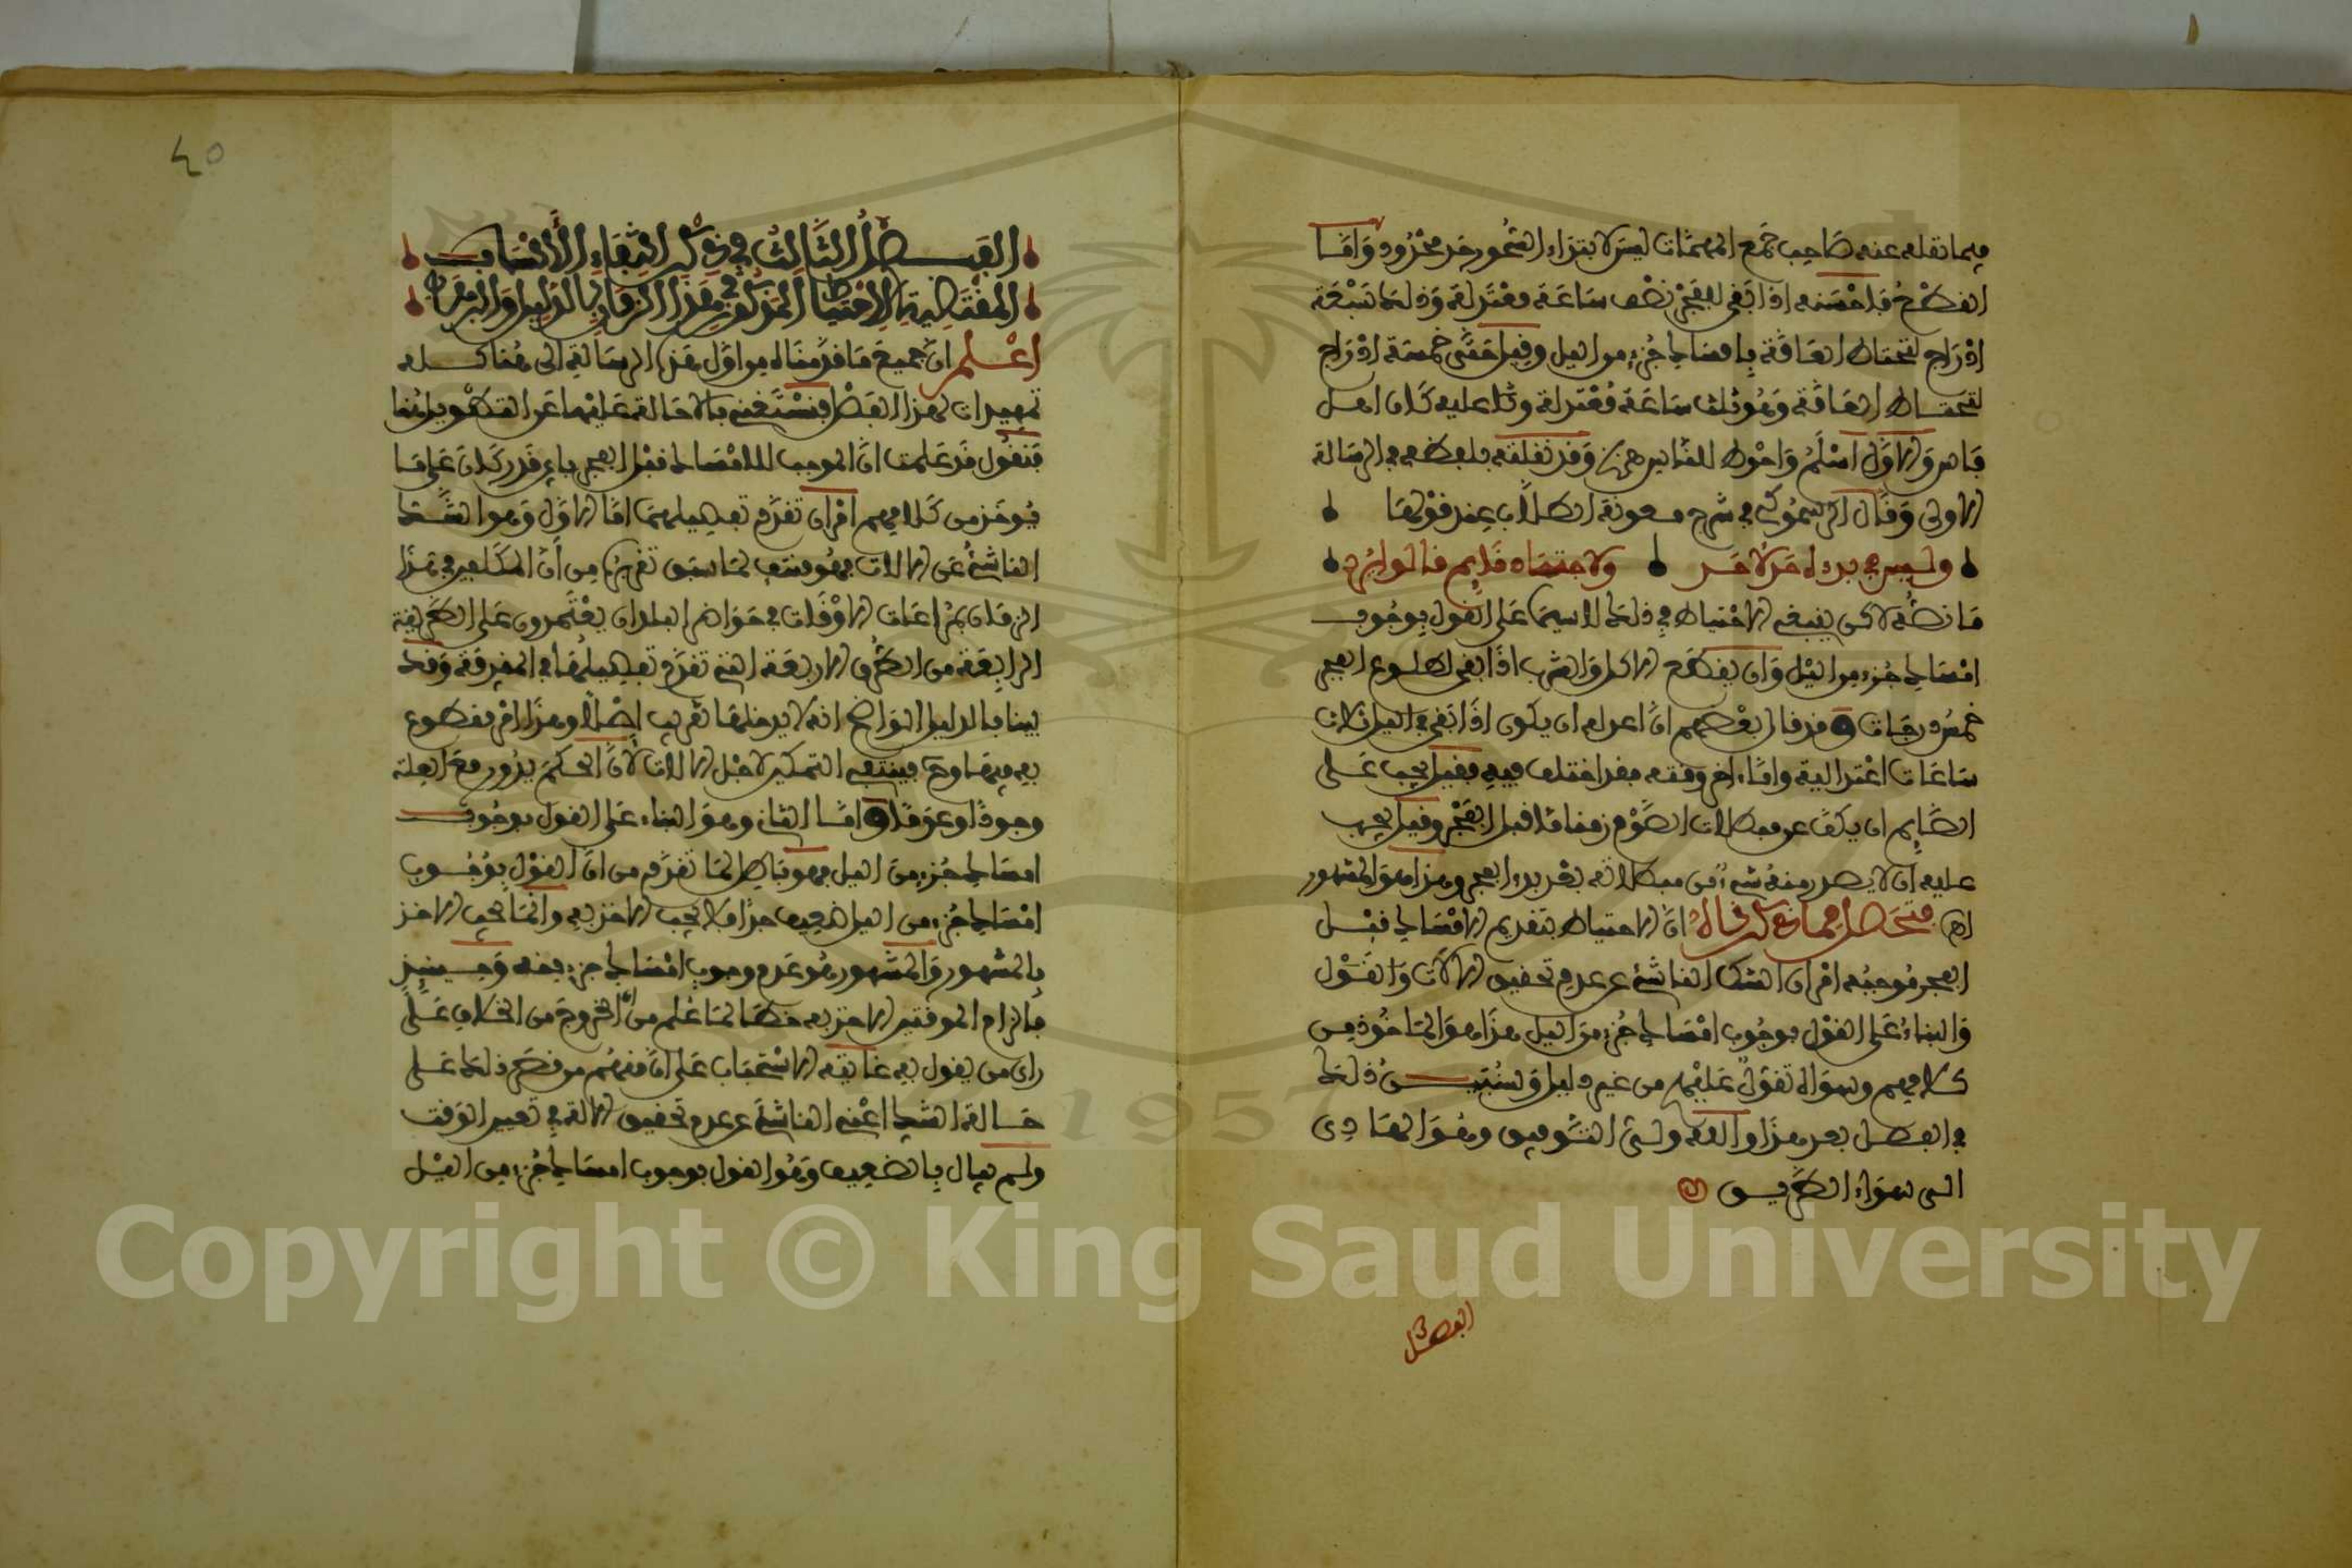 فيما نقله عنه صاحب جمع المهمات ليس لابتداء السحور حد محدود واما
القطع فاحسنه اذا بقي للفجر نصف ساعة معتدلة وذلك سبعة
ادراج لتحتاط العامة بامساك جزء من اليل وقيل حتى خمسة ادراج
لتحتاط العامة وهو ثلث ساعة معتدلة وثلا عليه كان اهل
فاس والاول اسلم واحوط للناس وقد نقلته بلفظه في الرسالة
الاولى وقال في شرح معونة الطلاب عند قولها
وليس في بدء احد لاحد ولاجتماه قدايم فالوايرد
ما نصه لاكن ينبغي الاحتياط في ذلك لاسيما على القول بوجوب
امساك جزء من اليل وان يقطع الاكل والشرب اذا بقي لطلوع الفجر
خمس درجات وقد قال بعضهم ان اعدله ان يكون اذا بقي من اليل ثلاث
ساعات اعتدالية واما ءاخر وقته فقد اختلف فيه فقيل يجب على
الصايم ان يكف عن مبطلات الصوم زمنا ما قبل الفجر وقيل يجب
عليه ان لا يصدر منه شيء من مبطلاته بعد بدء الفجر وهذا هو المشهور
اهـ فتحصل مما ذكر قاله ان الاحتياط بتقديم الامساك قبل
الفجر موجبه امران الشك الناشئ عن عدم تحقيق الالات والقول
والبناء على القول بوجوب امساك جزء من اليل هذا هو الماخوذ من
كلامهم وسواه تقول عليهم من غير دليل وسنبين ذلك
في الفصل بعد هذا والله ولي التوفيق وهو الهادي
الى سواء الطريق
الفصل
٤٥
الفصل الثالث في ذكر انتفاء الاسباب
المقتضية للاحتياط المذكور في هذا الزمان بالدليل والبرهان
اعلم ان جميع ما قدمناه من اول هذه الرسالة الى هنا كله
تمهيدات لهذا الفصل فنستغني بالاحالة عليها عن التطويل هنا
فنقول قد علمت ان الموجب للامساك قبل الفجر باي قدر كان على ما
يوخذ من كلامهم امران تقدم تفصيلهما اما الاول وهو الشك
الناشئ عن الالات فهو منتف لما سبق تقريره من ان المكلفين في هذا
الزمان بمراعات الاوقات في حواضر البلدان يعتمدون على الطريقة
الرابعة من الطرق الاربعة التي تقدم تفصيلها في المقدمة وقد
بينا بالدليل الواضح انه لا يدخلها تقريب اصلا وهذا امر مقطوع
به فيها وح فينتفي التمكين لاجل الالات لان الحكم يدور مع العلة
وجودا وعدما واما الثاني وهو البناء على القول بوجوب
امساك جزء من اليل فهو باطل لما تقدم من ان القول بوجوب
امساك جزء من اليل ضعيف جدا فلا يجب الاخذ به وانما يجب الاخذ
بالمشهور والمشهور هو عدم وجوب امساك جزء منه وحينئذ
فالزام الموقتين الاخذ به خطا لما علم من ان الخروج من الخلاف على
راي من يقول به غايته الاستحباب على ان منهم من قصر ذلك على
حالة الشك اعني الناشئ عن عدم تحقيق الالة في تعيين الوقت
ولم يبال بالضعيف وهو القول بوجوب امساك جزء من اليل
Copyright © King Saud University
1957